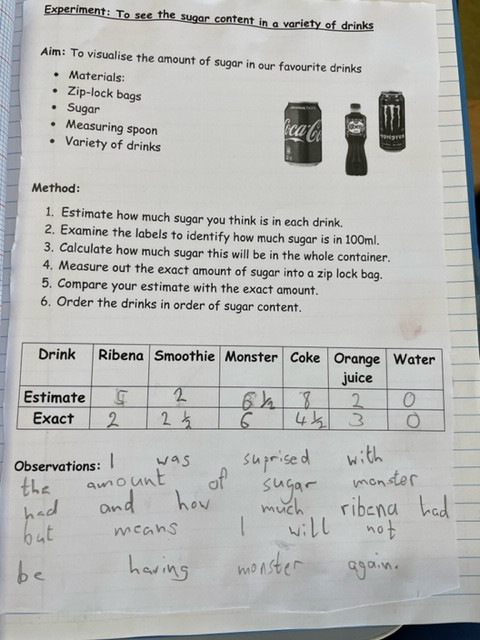 Experiment: To see the sugar content in a variety of drinks
Aim: To visualise the amount of sugar in our favourite drinks
• Materials:
• Zip-lock bags
• Sugar
• Measuring spoon
• Variety of drinks
Coca-Co
MONSTER
Method:
1. Estimate how much sugar you think is in each drink.
2. Examine the labels to identify how much sugar is in 100ml.
3. Calculate how much sugar this will be in the whole container.
4. Measure out the exact amount of sugar into a zip lock bag.
5. Compare your estimate with the exact amount.
6. Order the drinks in order of sugar content.
Drink Ribena Smoothie Monster Coke Orange juice Water
Estimate 2 6 ½ 8 2 0
Exact 2 2 ½ 6 4 ½ 3 0
Observations: I was suprised with
the amount of sugar monster
had and how much ribena had
but means I will not
be having monster again.